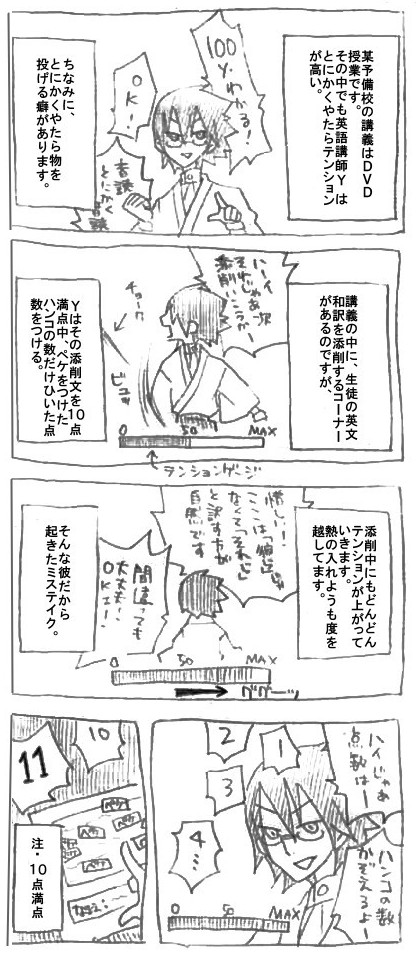 某予備校の講義はDVD
授業です。
その中でも英語講師Yは
とにかくやたらテンション
が高い。
100
Y・わかる!
OK!
ちなみに、
とにかくやたら物を
投げる癖があります。
音読
とにかく
音読
講義の中に、生徒の英文
和訳を添削するコーナー
があるのですが、
ハーイ
じゃあ次
それ
添削いこうかー
チョーク
ビュッ
Yはその添削文を10点
満点中、ペケをつけた
ハンコの数だけひいた点
数をつける。
0 50 MAX
テンションゲージ
添削中にもどんどん
テンションが上がって
いきます。
熱の入れようも度を
越してます。
惜しい!
ここは「
なくて「それじゃ」
と訳す方が
自然です
間違っても
大丈夫!
OK!
そんな彼だから
起きたミステイク。
0 50 MAX
グググーッ
ハイじゃあ
点数はー
ハンコの数
かぞえるよー
1
2
3
4…
0 50 MAX
10
11
ペケ
ペケ
ペケ
ペケ
注・10点満点